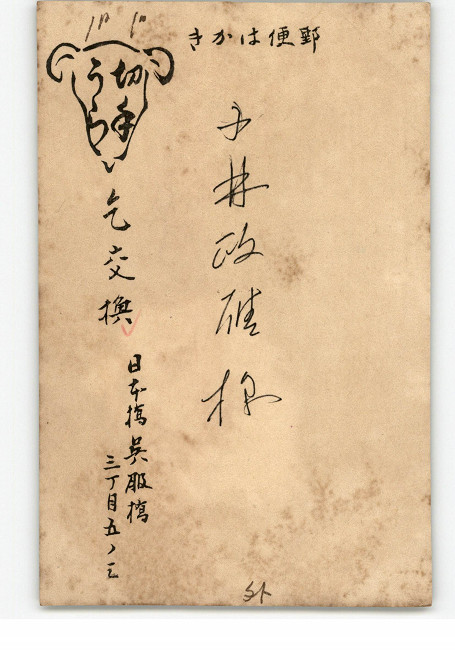 郵便はかき
小林政雄様
切手
うら
乞交換
日本橋呉服橋
三丁目五ノ三
外